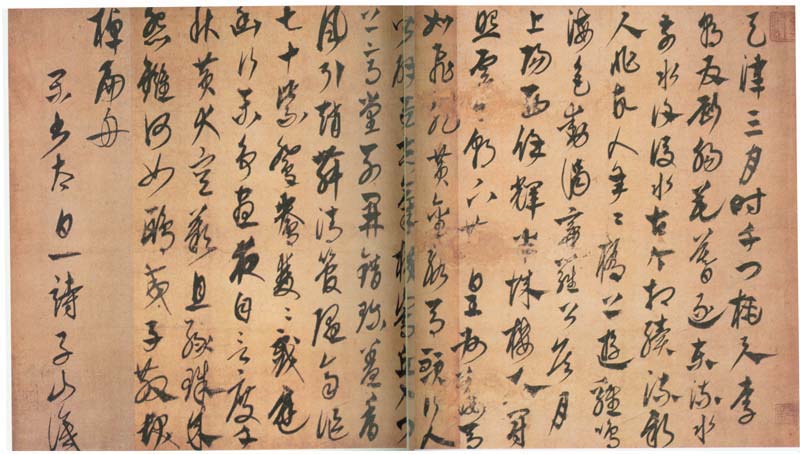 天津三月時千門桃李
朝為斷腸花暮逐東流水
前水復後水古今相續流新
人非舊人年年橋上遊雞鳴
海色動謁帝羅公侯月
上陽西餘輝半城樓衣冠
照雲日朝下散皇州鞍馬
如飛龍黃金絡馬頭行人
皆辟易志氣橫嵩丘入門
上高堂列鼎錯珍羞香
風引趙舞清管隨齊謳
七十紫鴛鴦雙雙戲庭
幽行樂爭晝夜自言度千
秋黃犬空歎息綠珠成
讎何如鴟夷子散髮
棹扁舟
書太白一詩子山識